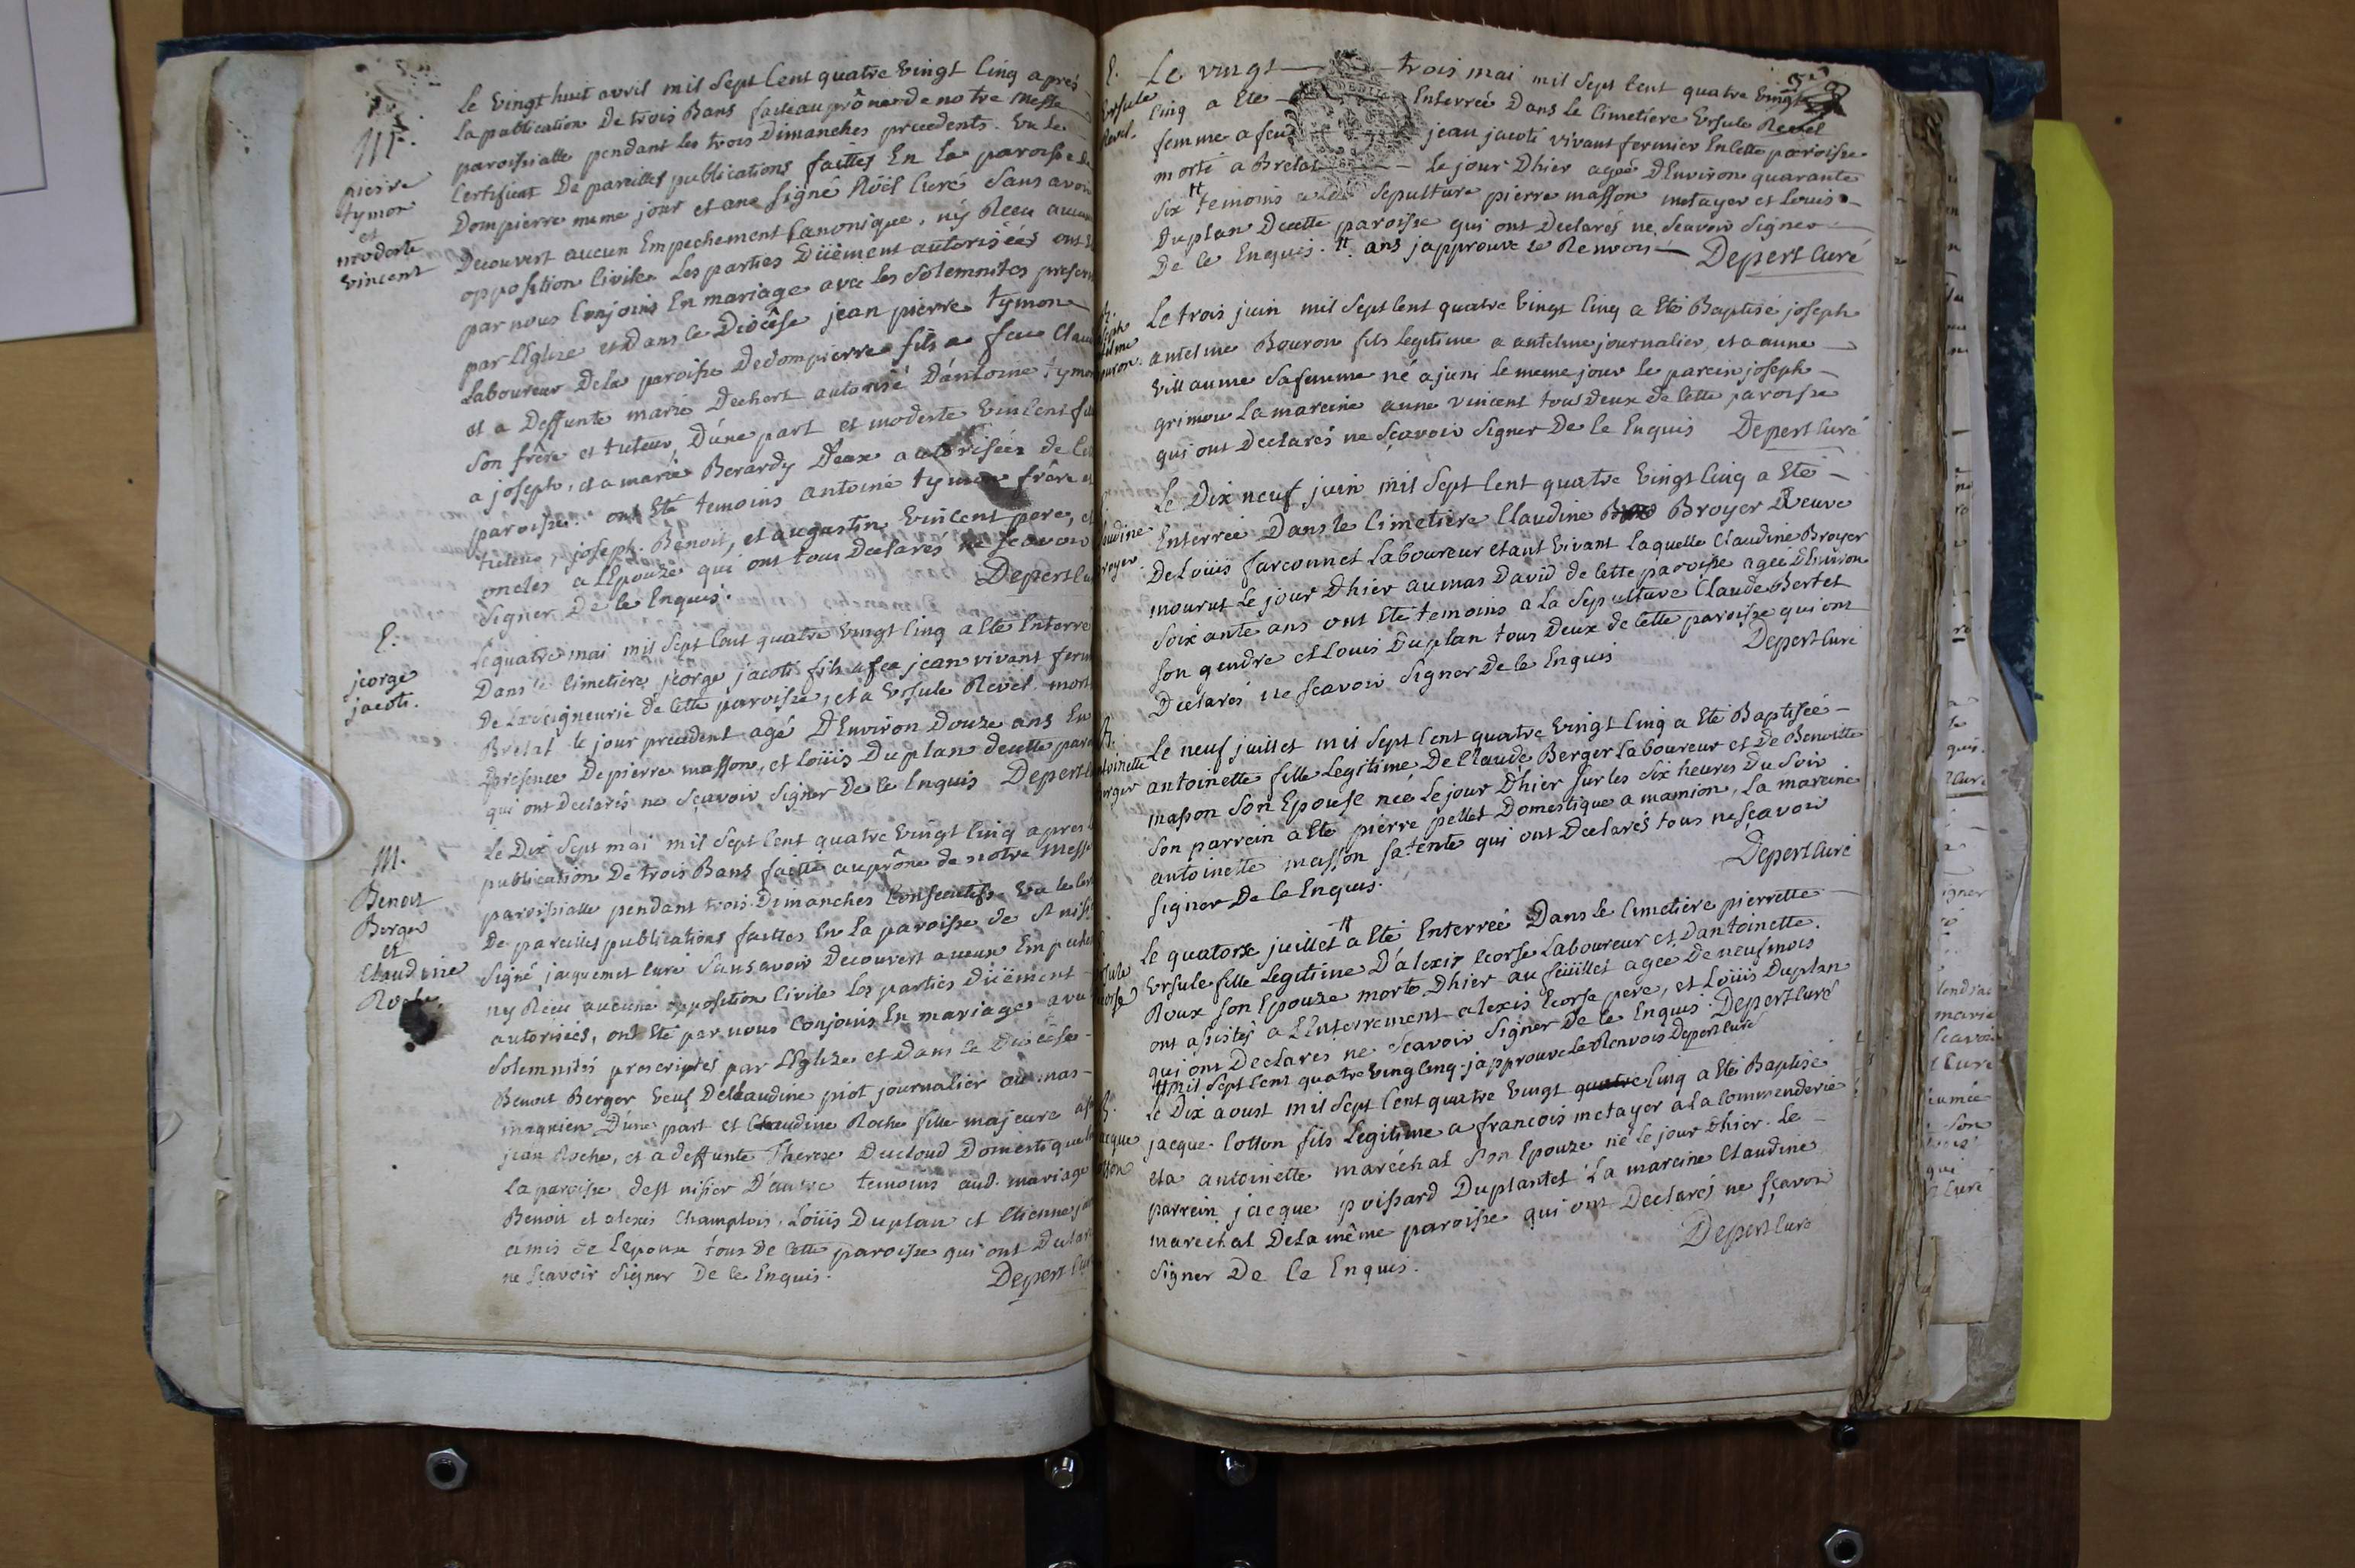 M.
pierre
tymon
et
modeste
vincent
Le vingt huit avril mil sept cent quatre vingt cinq apres
la publication de trois Bans faite au prône de notre Messe
paroissialle pendant les trois Dimanches precedents. Vu le
Certificat de pareilles publications faittes En la paroisse de
Dompierre meme jour et ane signé Nöel Curé Sans avoir
Decouvert aucun Empechement Canonique, ny Receu aucune
opposition Civile les parties Düement autorisées ont
par nous Conjoins En mariage avec les Solemnites
par l'Eglize et Dans le Diocêse jean pierre tymon
Laboureur De la paroisse De dompierre fils a feu
et a Deffunte marie Dechort autorisé D'antoine tymon
Son frere et tuteur, D'une part et modeste Vincent
a joseph, et a marie Berardy D'eax autorisées de
paroisse. ont Eté temoins antoine tymon frere
tuteur, joseph. Benoit, et augustin Vincent pere, et
oncles a l'Epouze qui ont tous Declarés ne Scavoir
Signer De Ce Enquis.
Depert
E.
jeorge
jacoti.
Le quatre mai mil Sept Cent quatre vingt Cinq a Eté Enterré
Dans le Cimetiere jeorge jacoti fils a feu jean vivant
De la Seigneurie de Cette paroisse, et a Ursule Revel.
Brelat le jour precedent agé D'Environ Douze ans En
presence De pierre masson, et Loüis Duplan decette
qui ont declarés ne Sçavoir Signer De Ce Enquis Depert
M.
Benoit
Berger
et
Claudine
Roche.
Le Dix Sept mai mil Sept Cent quatre Vingt Cinq apres
publication De trois Bans faitte au prône de notre Messe
paroissialle pendant trois Dimanches Consecutifs Vu le
De pareilles publications faittes En La paroisse de St
Signé jacquemet Curé Sans avoir Decouvert aucun
ny Receu aucune opposition Civile Les parties Düement
autorisées, ont Eté par nous Conjoins En mariage avec
Solemnités prescriptes par L'Eglize et Dans le Diocêse
Benoit Berger Veuf De Claudine piot journalier au mas
magnien D'une part et Claudine Roche fille majeure
jean Roche, et a deffunte Therese Ducloud Domestique
La paroisse de st nisier D'autre temoins aud. mariage
Benoit et alexis Champlois, Loüis Duplan et Etienne
amis de l'epoux tous de Cette paroisse qui ont
ne Scavoir Signer De Ce Enquis.
Depert
E.
Ursule
Revel.
Le vingt trois mai mil Sept Cent quatre vingt
Cinq a Eté Enterrée Dans le Cimetiere Ursule Revel
femme a feu jean jacoti vivant fermier En Cette paroisse
morte a Brelat Le jour D'hier agée D'Environ quarante
Six # temoins a la Sepulture pierre masson metayer et Louis
Duplan Decette paroisse qui ont Declarés ne Scavoir Signer
De Ce Enquis. #. ans j'approuve le Renvois Depert Curé
Le trois juin mil Sept Cent quatre Vingt Cinq a Eté Baptisé joseph
antelme Bouron fils legitime a antelme journalier, et a anne
Villaume Sa femme né a juni le meme jour le parein joseph
grimou La mareine anne vincent tous Deux de Cette paroisse
qui ont Declarés ne Sçavoir Signer De Ce Enquis Depert Curé
Le Dix neuf juin mil Sept Cent quatre Vingt Cinq a Eté
Enterrée Dans le Cimetiere Claudine Broyer Veuve
De Loüis farconnet Laboureur Etant Vivant laquelle Claudine Broyer
mourut Le jour D'hier au mas David de Cette paroisse agée D'Environ
Soixante ans ont Eté temoins a La Sepulture Claude Bertet
Son gendre et Louis Duplan tous Deux de Cette paroisse qui ont
Declarés ne Scavoir Signer De Ce Enquis Depert Curé
Le neuf juillet mil Sept Cent quatre Vingt Cinq a Eté Baptisée
antoinette fille Legitime De Claude Berger Laboureur et De Benoitte
masson Son Epouse née Le jour D'hier Sur les Six heures Du Soir
Son parrein a Eté pierre pellet Domestique a mamion, La mareine
antoinette masson Sa tente qui ont Declarés tous ne Sçavoir
Signer De Ce Enquis.
Depert Curé
Le quatorze juillet # a Eté Enterrée Dans le Cimetiere pierrette
Ursule fille Legitime D'alexis Ecorse Laboureur et D'antoinette
Roux Son Epouze morte D'hier au feüillet agée De neuf mois
ont assistés a L'Enterrement alexis Ecorse pere, et Loüis Duplan
qui ont Declares ne Scavoir Signer De Ce Enquis. Depert Curé
# mil Sept Cent quatre Ving Cinq. j'approuve Le Renvois Depert Curé
Le Dix aoust mil Sept Cent quatre Vingt quatre Cinq a Eté Baptisé
jacque Cotton fils Legitime a francois metayer a la Commenderie
et a antoinette maréchal Son Epouze né le jour D'hier. Le
parrein jacque poissard Duplantet La mareine Claudine
marechal De la même paroisse qui ont Declarés ne Sçavoir
Signer De Ce Enquis.
Depert Curé